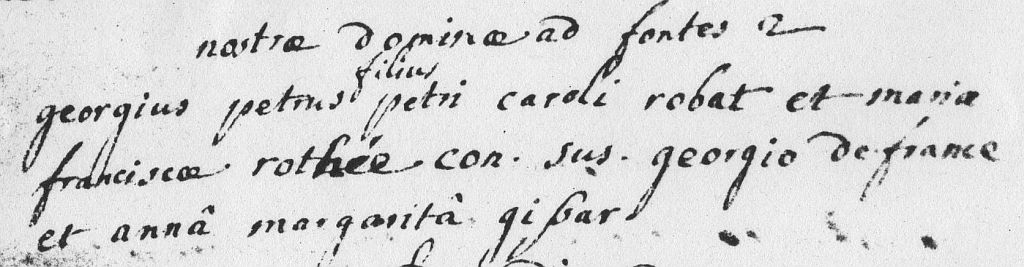 nostræ dominæ ad fontes 2
filius
georgius petrus petri caroli robat et mariæ
franciscæ rothée con. sus. georgio de france
et annâ margaritâ gißar